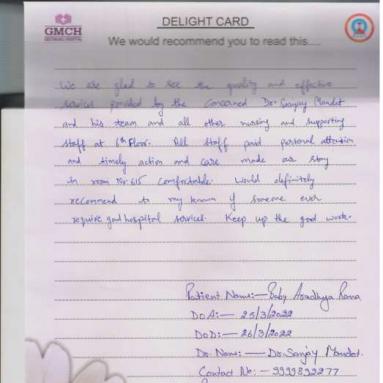 GMCH
DELIGHT CARD
We would recommend you to read this....
We are glad to see the quality and effective
services provided by the concerned Dr. Sanjay Mandot
and his team and all other nursing and supporting
staff at 6th Floor. All staff paid personal attention
and timely action and care made our stay
in room No. 615 comfortable. Would definitely
recommend to my known if someone ever
require good hospital services. Keep up the good work.
Patient Name:— Baby Rana
DOA:— 25/3/2022
DOD:— 26/3/2022
Dr. Name:— Dr. Sanjay Mandot.
Contact No:— 9999892277